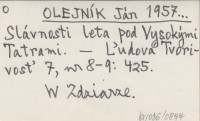 O
OLEJNÍK Ján 1957...
Slávnosti leta pod Vysokými
Tatrami. — Ľudová Tvori-
vosť 7, nr 8-9: 425.
W Zdziarze.